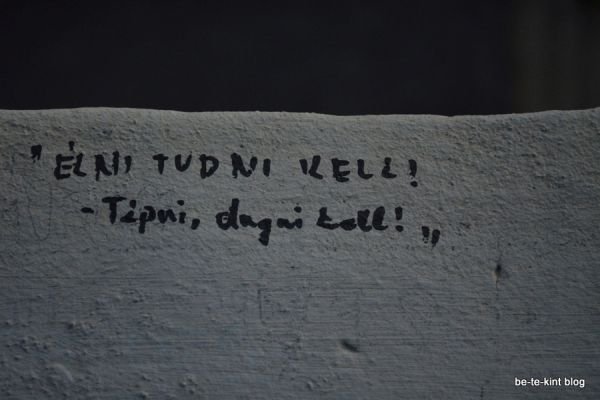 "ÉLNI TUDNI KELL!
- Tépni, dugni kell! "
be-te-kint blog